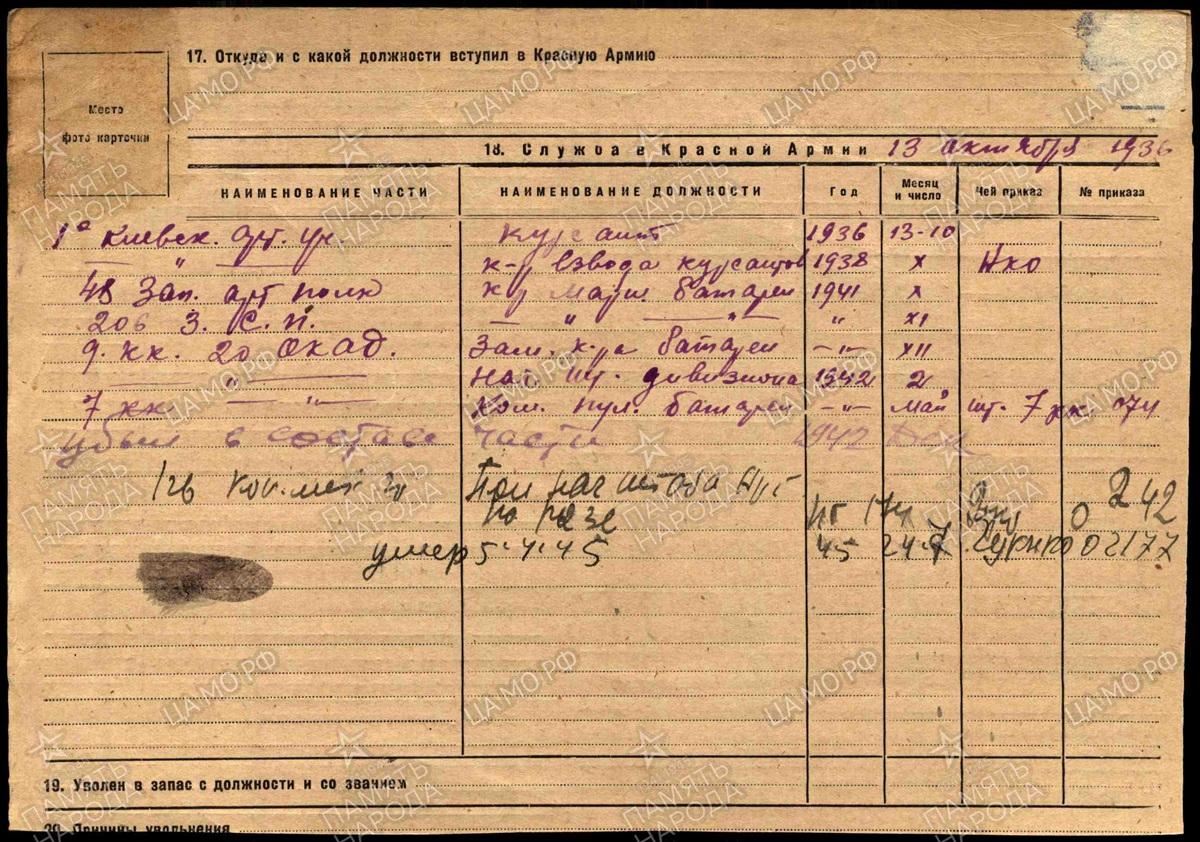 17. Откуда и с какой должности вступил в Красную Армию
Место
фото карточки
18. Служба в Красной Армии 13 октября 1936
НАИМЕНОВАНИЕ ЧАСТИ НАИМЕНОВАНИЕ ДОЛЖНОСТИ Год Месяц и число Чей приказ № приказа
1е Киевск. арт. уч. курсант 1936 13-10
— " — к-р взвода курсантов 1938 X НКО
48 зап. арт полк к-р батареи 1941 X
206 З. С. П. — " — — " — " XI
9. кк. 20. ОКАД. Зам. к-ра батареи —"— XII
— " — Нач. шт. дивизиона 1942 2
7 кк — " — Ком. батареи —"— май шт. 7 кк. 074
убыл в составе части 1942
Пом нач штаба 242
по
умер 5.4.45 45 24.7 02177
19. Уволен в запас с должности и со званием
20. Причины увольнения
ЦАМО.РФ
ПАМЯТЬ НАРОДА